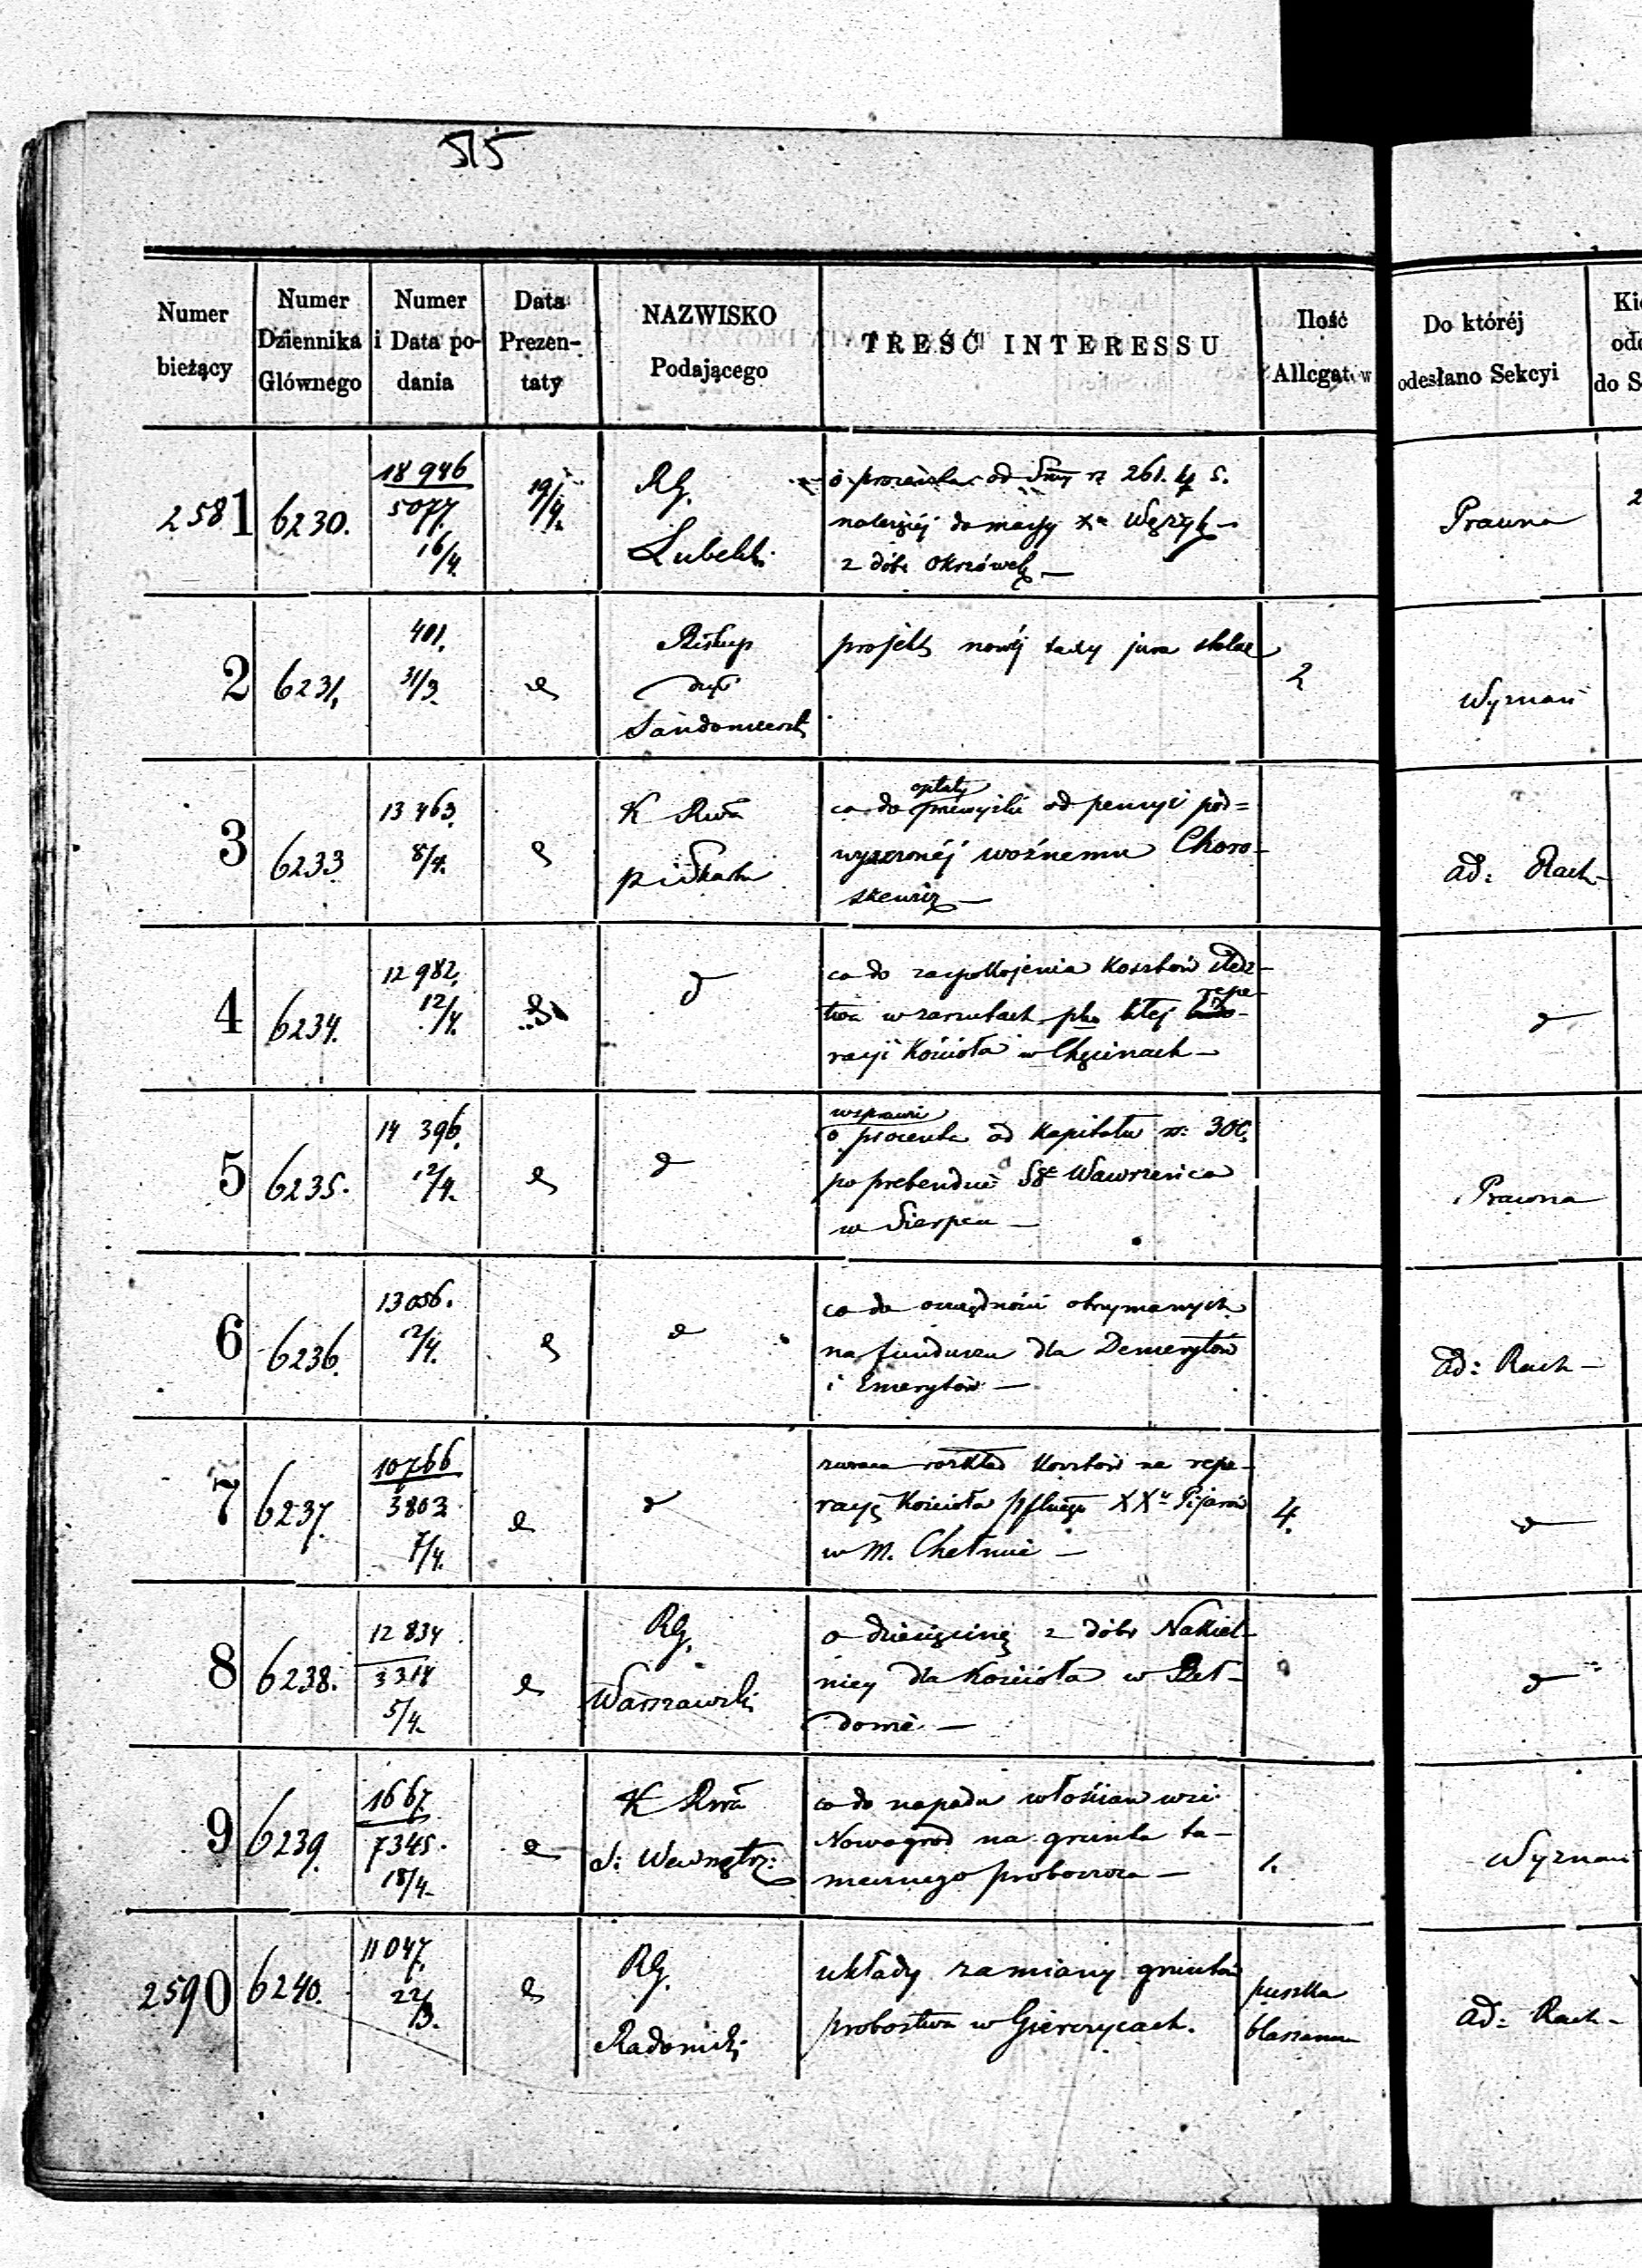 515
Numer bieżący
Numer Dziennika Głównego
Numer i Data podania
Data Prezentaty
NAZWISKO Podającego
TREŚĆ INTERESSU
Ilość Allegatów
Do któréj odesłano Sekcyi
2581 6230. 18946 5077. 16/4. 19/4. RG. Lubelski
o procenta od Sumy rs 261. k
należnéj do massy Xa Wężyk
z dóbr Okrzówek —
Prawna
2 6231. 401. 31/3. Biskup dyec Sandomiersk
projekt nowéj taxy jura stolae
2
Wyznań
3 6233 13463. 8/4. K Rwa PiSkarbu
co do opłaty od pensyi pod=
wyższonéj woźnemu Choro-
skewicz —
ad: Rach-
4 6234. 12982. 12/4. d
co do zaspokojenia kosztów śledz-
twa w zarzutach repe-
racyi Kościoła w Chęcinach —
d
5 6235. 14396. 12/4. d
w sprawie
o procenta od Kapitału rs: 300.
po prebendzie Sgo Wawrzeńca
w Sierpcu —
Prawna
6 6236. 13056. 12/4. d
co do oszczędności otrzymanych
na funduszu dla Demerytów
i Emerytów —
ad: Rach —
7 6237. 10766 3803 7/4. d
zwraca rozkład Kosztów na repe-
racyę Kościoła XXy Pijarów
w M. Chełmie —
4.
d
8 6238. 12834 3318 5/4. RG. Warszawski
o dziesięcinę z dóbr Nakiel-
nicy dla Kościoła w Beł-
domie —
d
9 6239. 1667 7345. 18/4. K Rwa S: Wewnętrz:
co do napadu włościan wsi
Nowogrod na grunta ta-
mecznego proboszcza —
1.
Wyznań
2590 6240. 11047. 22/3. RG. Radomski
układy zamiany gruntów
probostwa w Gierczycach.
puszka
blaszanna
ad: Rach-